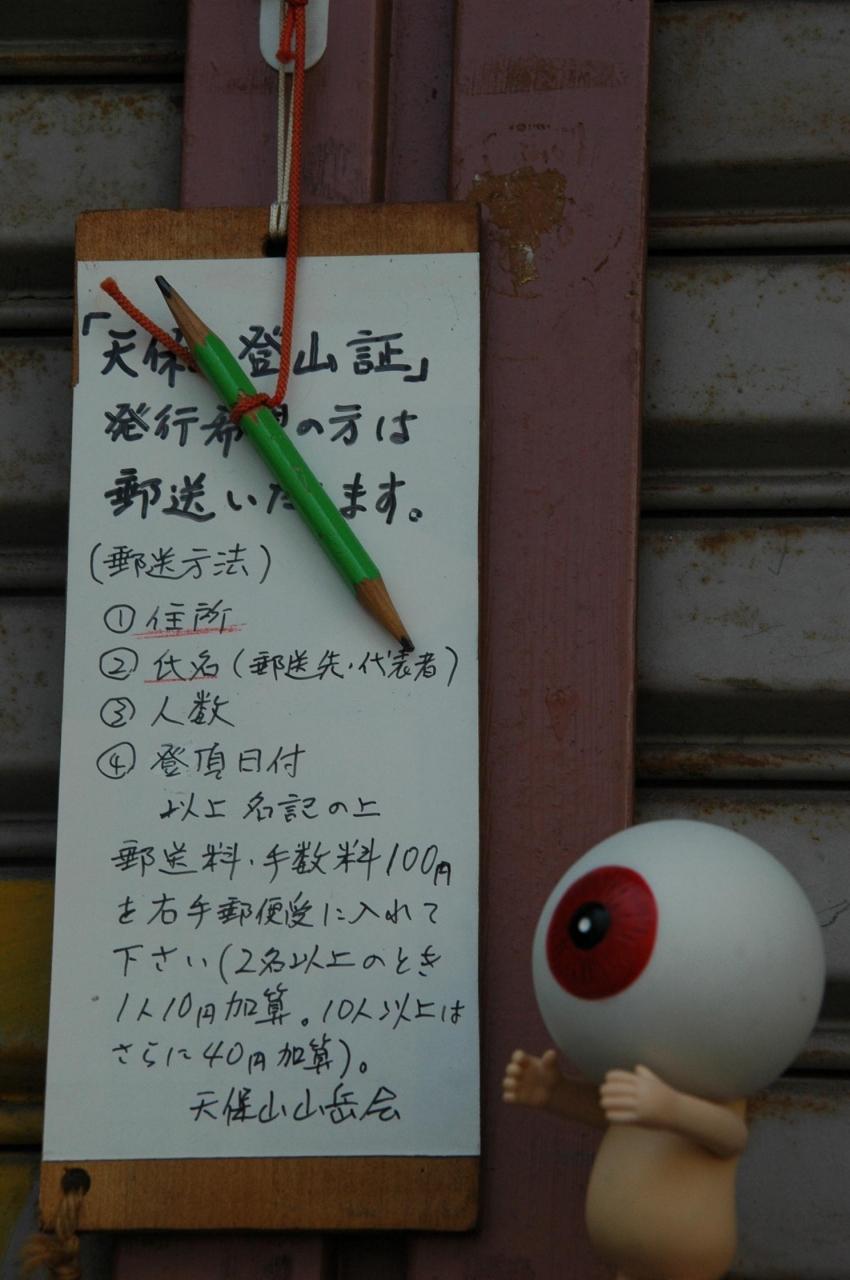 「天保 登山証」
発行希望の方は
郵送いたします。
(郵送方法)
① 住所
② 氏名(郵送先・代表者)
③ 人数
④ 登頂日付
以上 名記の上
郵送料・手数料100円
を右手郵便受に入れて
下さい(2名以上のとき
1人10円加算。10人以上は
さらに40円加算)。
天保山山岳会